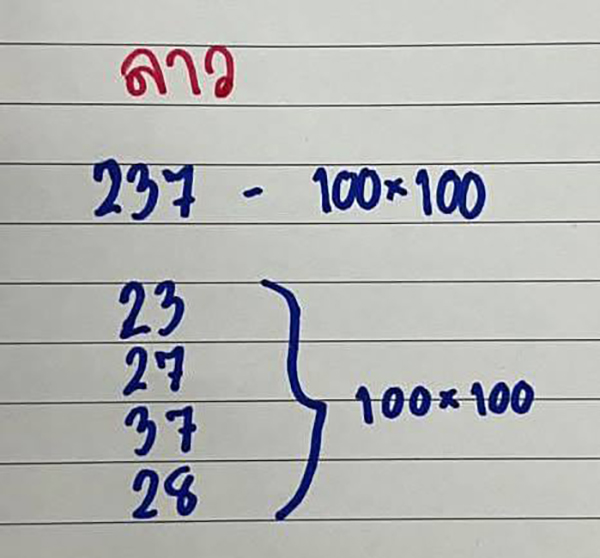 ลาว
237 - 100×100
23
27
37
28
100×100